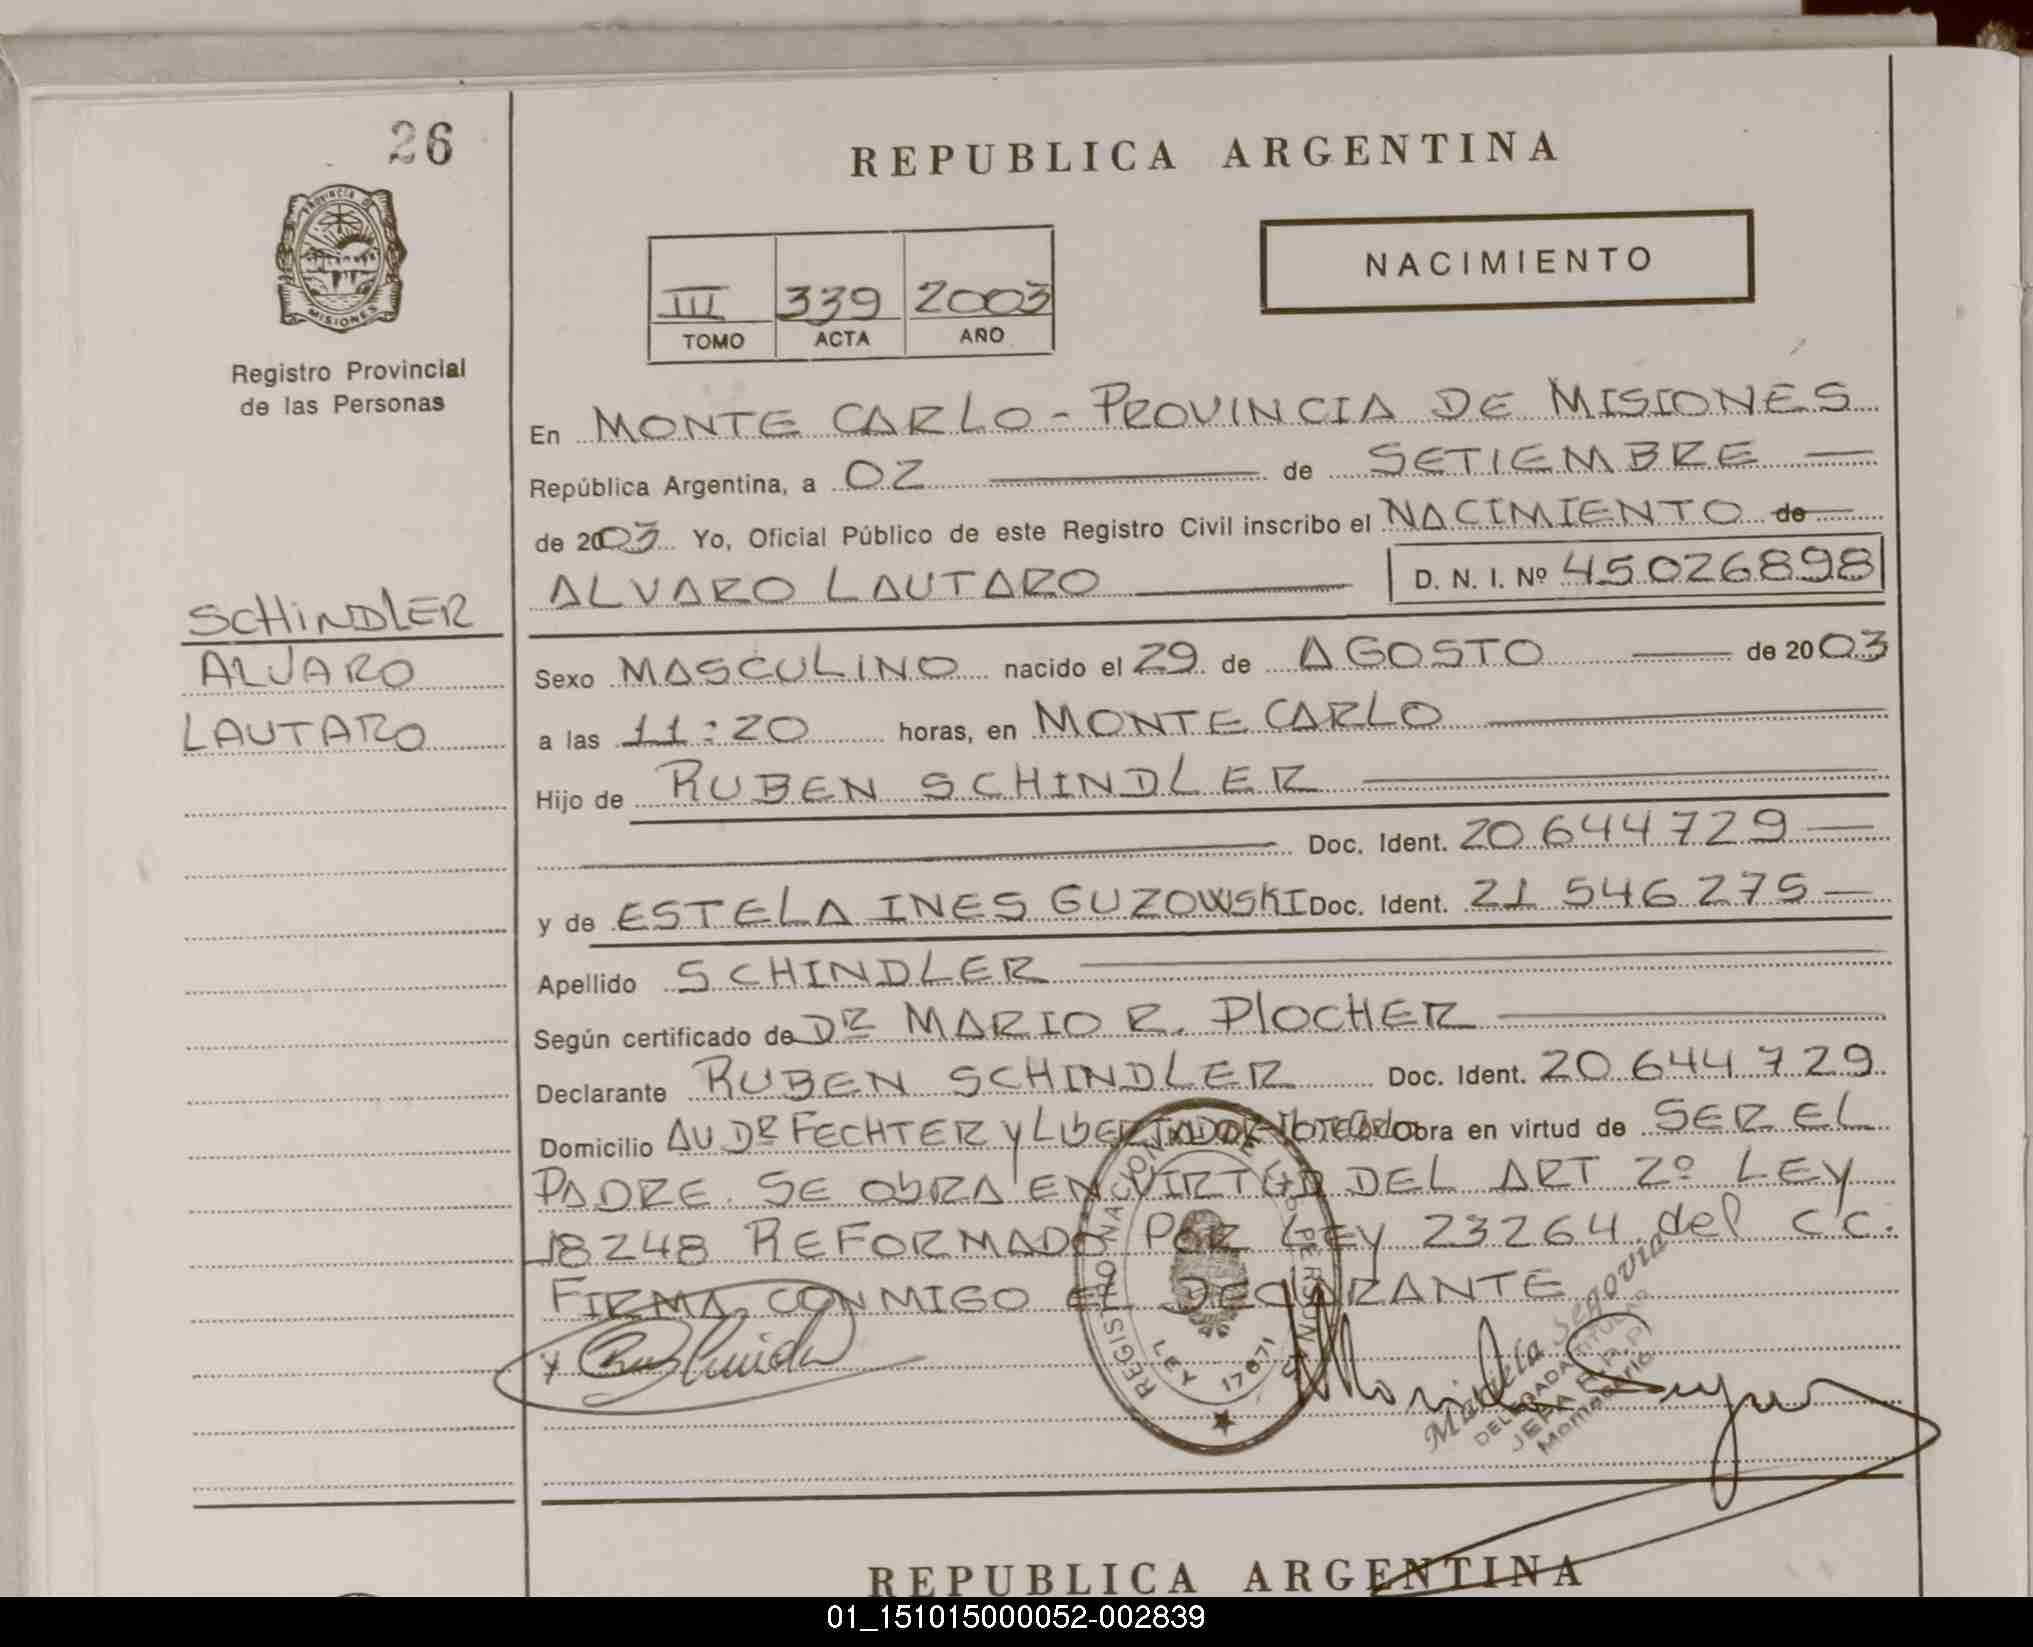 26
REPUBLICA ARGENTINA
PROVINCIA DE MISIONES
Registro Provincial
de las Personas
III 339 2003
TOMO ACTA AÑO
NACIMIENTO
En MONTE CARLO - PROVINCIA DE MISIONES
República Argentina, a 02 de SETIEMBRE
de 2003 Yo, Oficial Público de este Registro Civil inscribo el NACIMIENTO de
ALVARO LAUTARO D. N. I. Nº 45026898
SCHINDLER
ALVARO
LAUTARO
Sexo MASCULINO nacido el 29 de AGOSTO de 2003
a las 11:20 horas, en MONTE CARLO
Hijo de RUBEN SCHINDLER
Doc. Ident. 20 644 729
y de ESTELA INES GUZOWSKI Doc. Ident. 21 546 275
Apellido SCHINDLER
Según certificado de DR MARIO R. PLOCHER
Declarante RUBEN SCHINDLER Doc. Ident. 20 644 729
Domicilio AV DR FECHTER Y LIBERTADOR obra en virtud de SER EL
PADRE. SE ObRA EN VIRTUD DEL ART 2º LEY
18248 REFORMADO POR LEY 23264 del C.C.
FIRMA CONMIGO EL DECLARANTE
REGISTRO NACIONAL DE LAS PERSONAS
LEY 17671
Mariela Segovia
DELEGADA TITULAR
JEFA R.P.P.
Montecarlo
REPUBLICA ARGENTINA
01_151015000052-002839